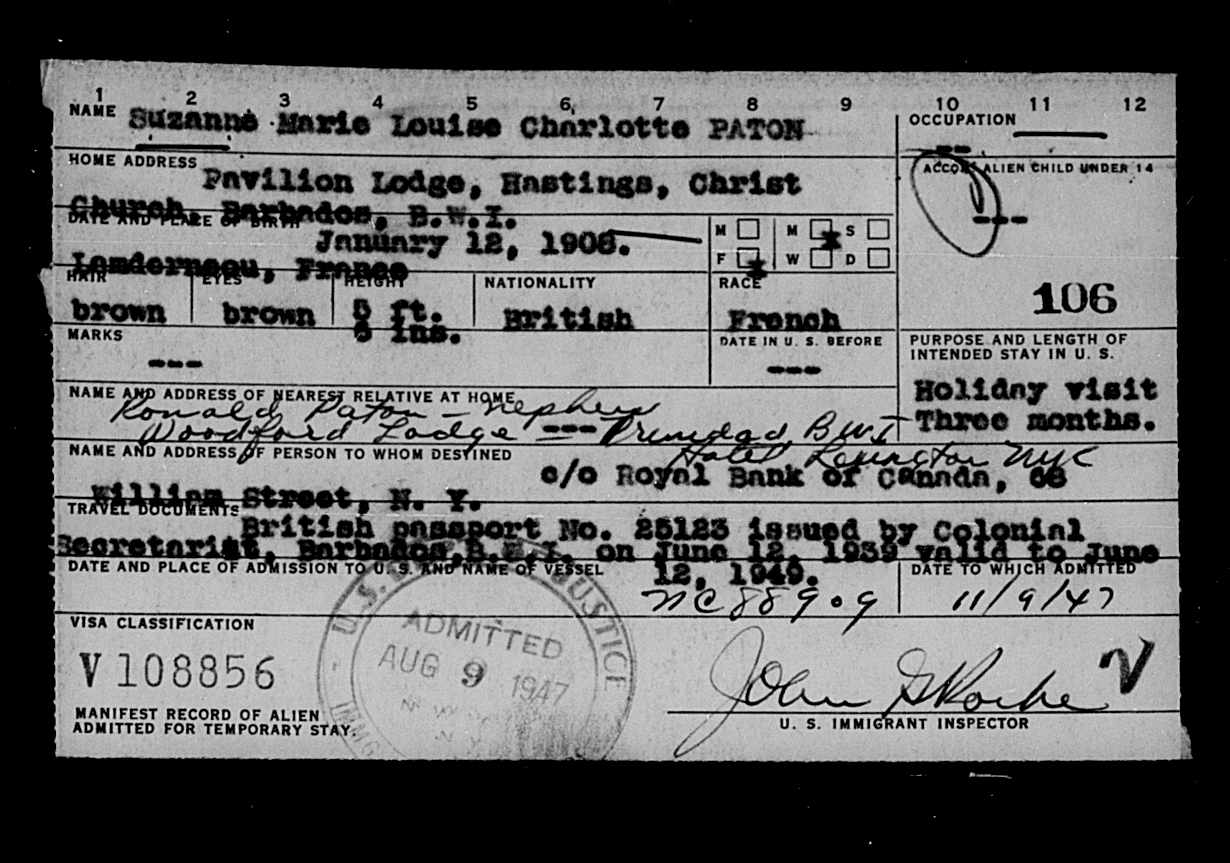 1 2 3 4 5 6 7 8 9 10 11 12
NAME Suzanne Marie Louise Charlotte PATON
OCCUPATION
HOME ADDRESS Pavilion Lodge, Hastings, Christ
Church, Barbados, B.W.I.
ACCOM. ALIEN CHILD UNDER 14
---
DATE AND PLACE OF BIRTH January 12, 1908.
Lamderneau, France
M M S
F W D
106
HAIR EYES HEIGHT NATIONALITY RACE
brown brown 5 ft. British French
6 ins.
MARKS
---
DATE IN U. S. BEFORE
---
PURPOSE AND LENGTH OF
INTENDED STAY IN U. S.
Holiday visit
Three months.
NAME AND ADDRESS OF NEAREST RELATIVE AT HOME
Ronald Paton - Nephew
Woodford Lodge --- Trinidad, B W I
NAME AND ADDRESS OF PERSON TO WHOM DESTINED Hotel Lexington NYC
c/o Royal Bank of Canada, 68
William Street, N. Y.
TRAVEL DOCUMENTS British passport No. 25123 issued by Colonial
Secretariat, Barbados, B.W.I. on June 12, 1939 valid to June
12, 1949.
DATE AND PLACE OF ADMISSION TO U. S. AND NAME OF VESSEL
NC88909
DATE TO WHICH ADMITTED
11/9/47
VISA CLASSIFICATION
V 108856
U.S. JUSTICE
ADMITTED
AUG 9 1947
N. Y.
John G Roche
V
U. S. IMMIGRANT INSPECTOR
MANIFEST RECORD OF ALIEN
ADMITTED FOR TEMPORARY STAY.